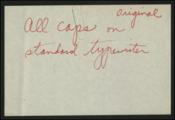 Original
All caps on
standard typewriter